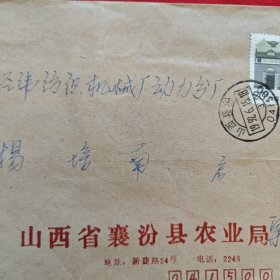 经纬纺织机械厂动力分厂
杨培南 启
山西襄汾
山西省襄汾县农业局
地址：新建路24号 电话：2246
041500